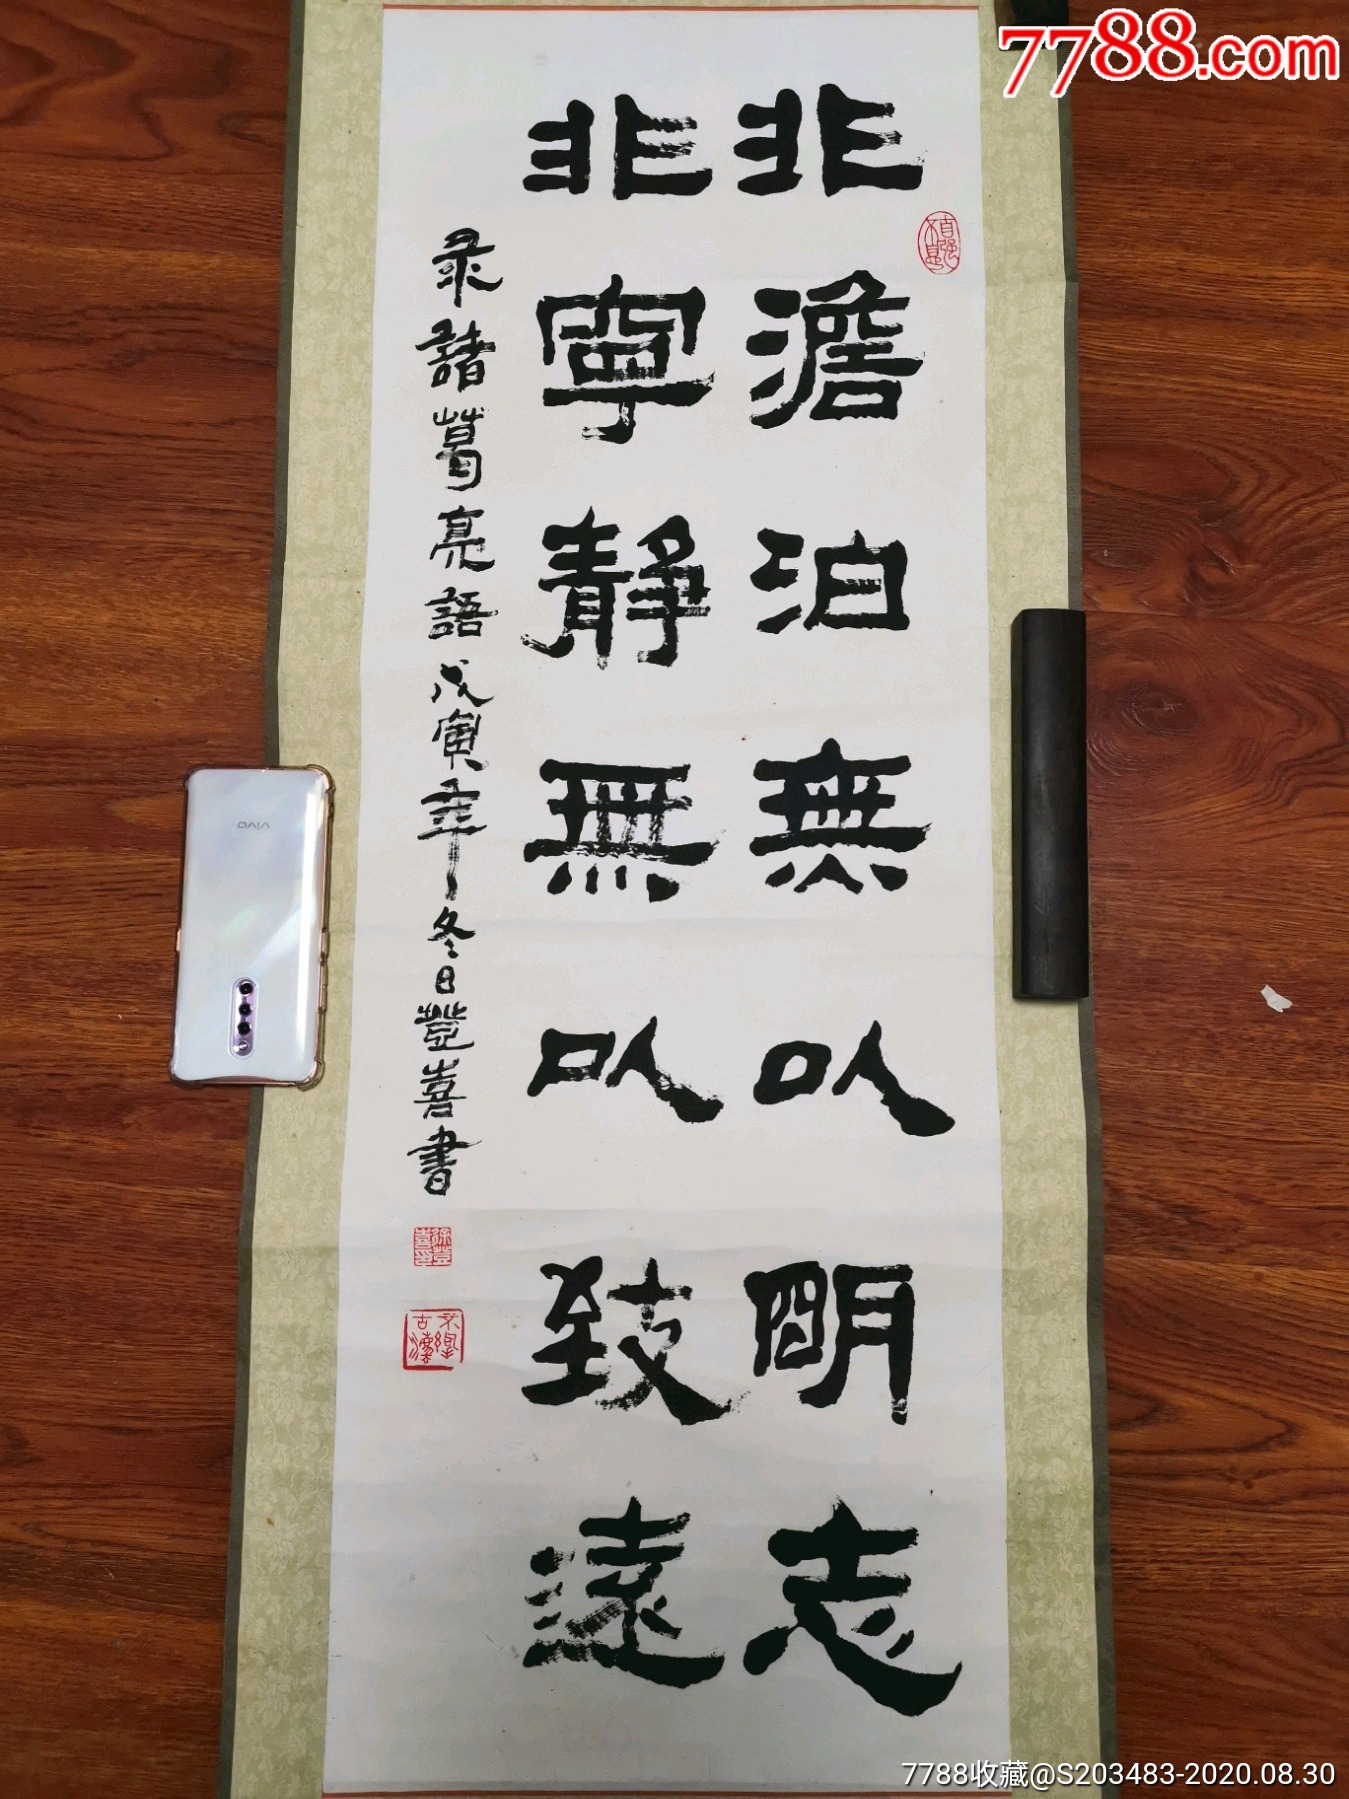 7788.com
非澹泊無以明志
非寧静無以致遠
录諸葛亮語戊寅年冬日豋喜書
vivo
7788收藏@S203483-2020.08.30